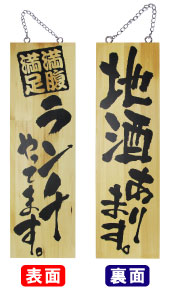 満腹
満足
ランチ
やってます。
地酒
あります。
表面
裏面